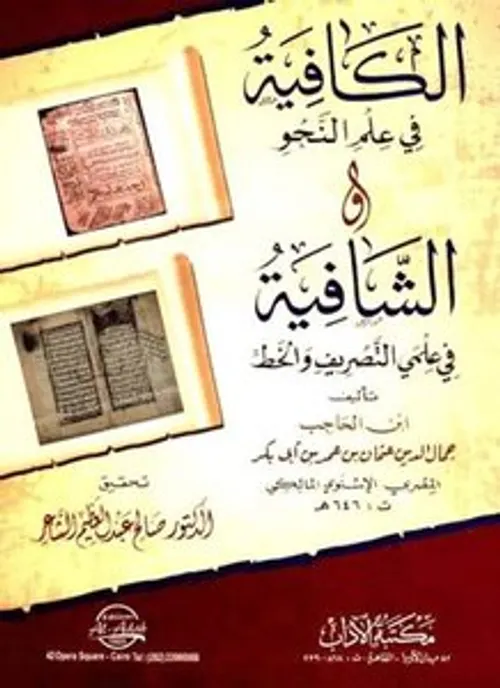 الكَافِيَةُ
في عِلْمِ النَّحْوِ
و
الشَّافِيَةُ
في عِلْمَي التَّصْرِيفِ وَالخَطِّ
تأليف
ابن الحاجب
جمال الدين عثمان بن عمر بن أبي بكر
المصري الإسنوي المالكي
ت : ٦٤٦هـ
تحقيق
الدكتور صالح عبد العظيم الشاعر
مكتبة الآداب
Al-Adab
42 Opera Square - Cairo Tel: (202)